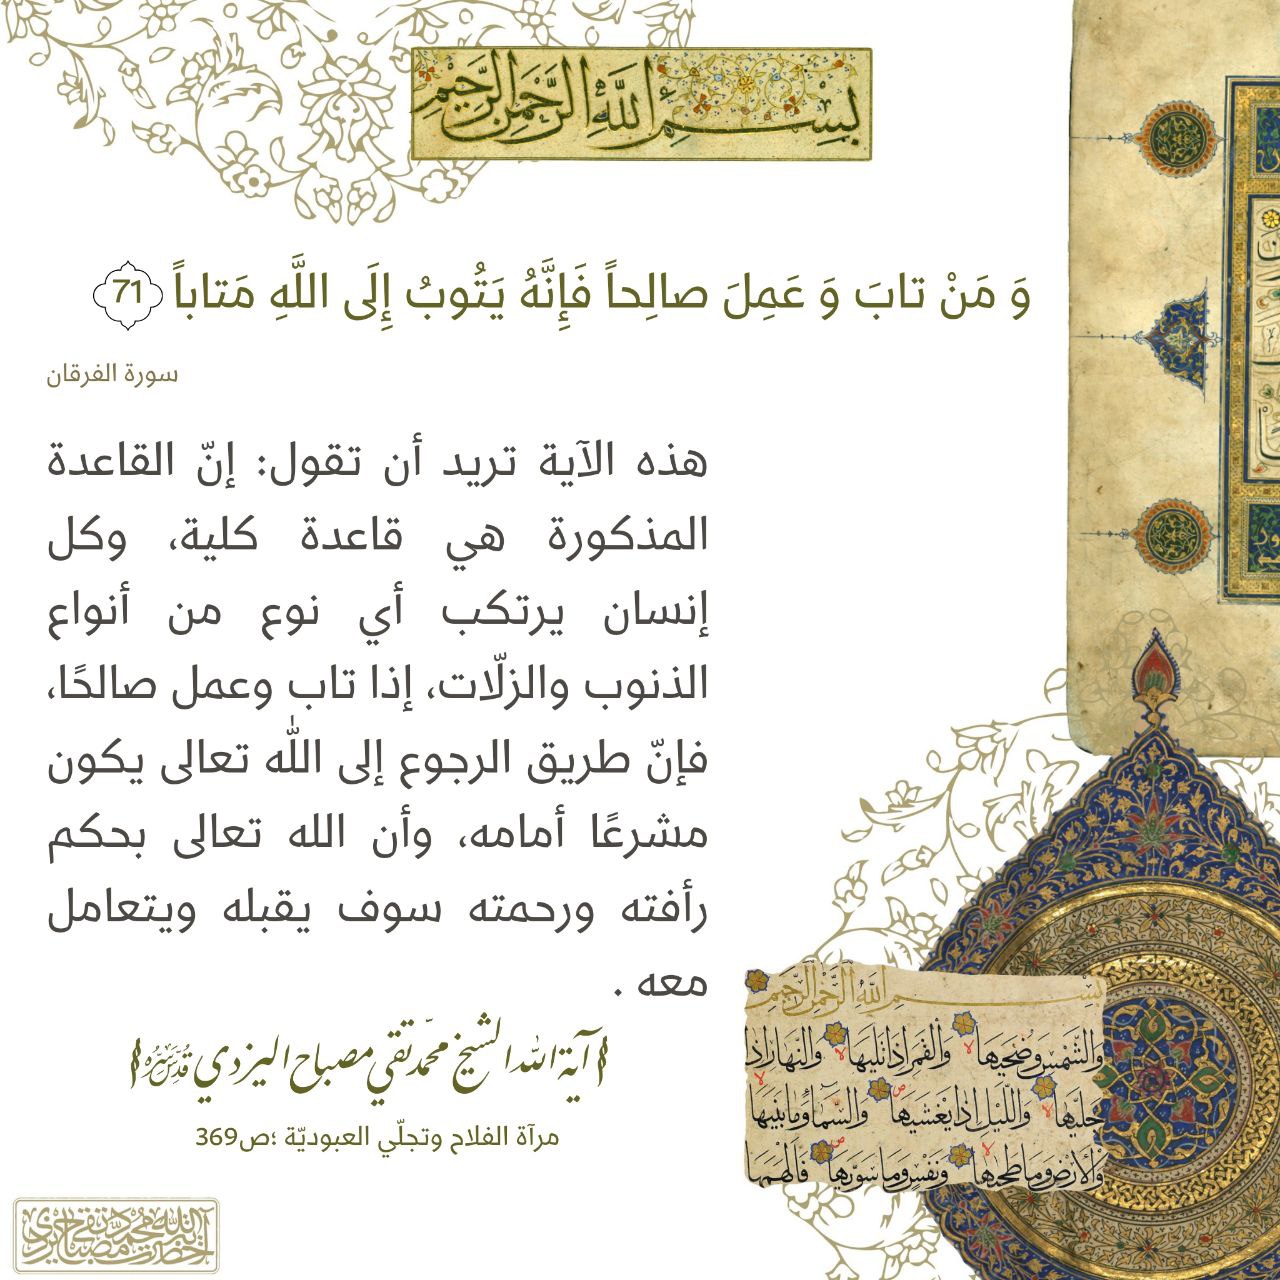 بِسْمِ اللَّهِ الرَّحْمَنِ الرَّحِيمِ
وَ مَنْ تابَ وَ عَمِلَ صالِحاً فَإِنَّهُ يَتُوبُ إِلَى اللَّهِ مَتاباً 71
سورة الفرقان
هذه الآية تريد أن تقول: إنّ القاعدة
المذكورة هي قاعدة كلية، وكل
إنسان يرتكب أي نوع من أنواع
الذنوب والزلّات، إذا تاب وعمل صالحًا،
فإنّ طريق الرجوع إلى الله تعالى يكون
مشرعًا أمامه، وأن الله تعالى بحكم
رأفته ورحمته سوف يقبله ويتعامل
معه .
آية الله الشيخ محمّد تقي مصباح اليزدي
مرآة الفلاح وتجلّي العبوديّة ؛ص369
بسم الله الرحمن الرحيم
والشمس وضحيها والقمر اذا تليها والنهار اذا
جليها والليل اذا يغشيها والسماء وما بنيها
والارض وما طحيها ونفس وما سويها فالهمها